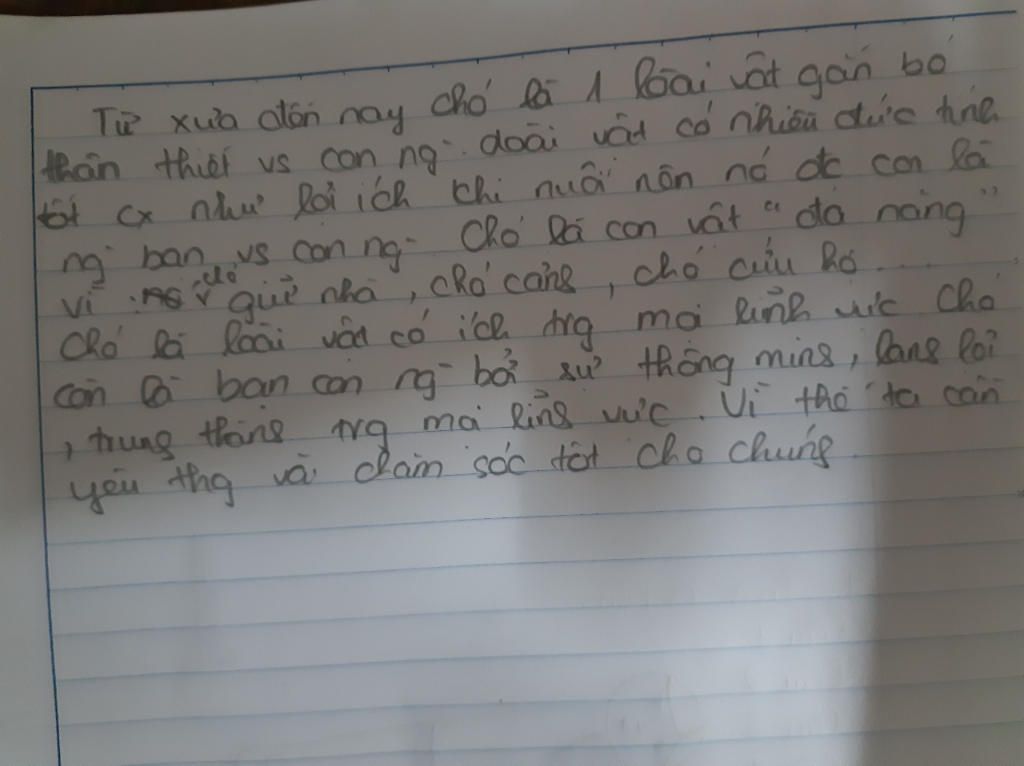 Từ xưa đến nay chó là 1 lòai vật gắn bó
thân thiết vs con ng. doài vật có nhiều đức tính
tốt cx như lợi ích khi nuôi nên nó đc con là
ng bạn vs con ng. Chó là con vật "đa năng"
Vì chó giữ nhà, chó cảng, chó cứu hộ....
Chó là lòai vật có ích trg mọi lĩnh vực Chó
còn là bạn con ng bởi sự thông mins, lans lợi
, trung thàng trg mọi lĩng vực. Vì thế ta cần
yêu thg và chăm sóc tốt cho chúng